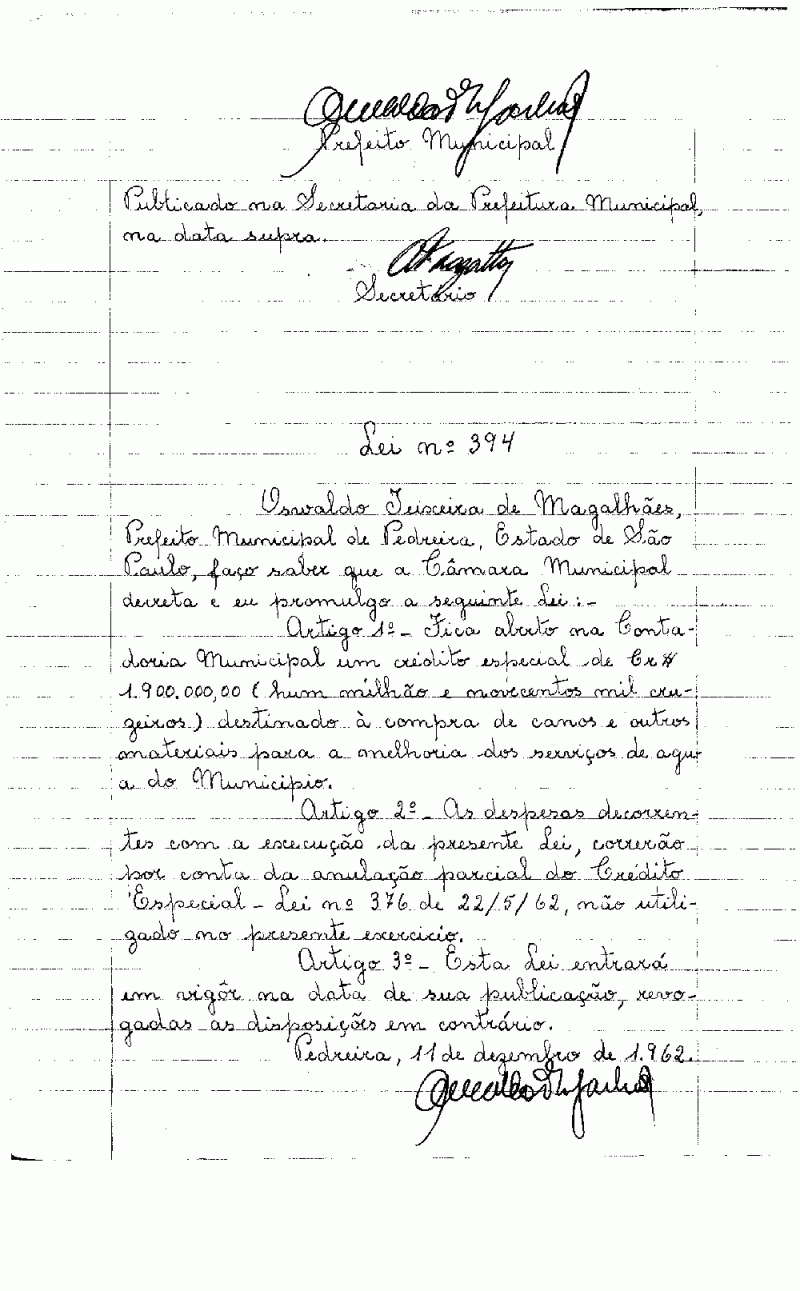 Prefeito Municipal
Publicado na Secretaria da Prefeitura Municipal,
na data supra.
Secretário
Lei nº 394
Oswaldo Teixeira de Magalhães,
Prefeito Municipal de Pedreira, Estado de São
Paulo, faço saber que a Câmara Municipal
decreta e eu promulgo a seguinte Lei:-
Artigo 1º - Fica aberto na Conta-
doria Municipal um crédito especial de Cr$
1.900.000,00 (hum milhão e novecentos mil cru-
zeiros) destinado à compra de canos e outros
materiais para a melhoria dos serviços de águ-
a do Município.
Artigo 2º - As despesas decorren-
tes com a execução da presente Lei, correrão
por conta da anulação parcial do Crédito
Especial - Lei nº 376 de 22/5/62, não utili-
zado no presente exercício.
Artigo 3º - Esta Lei entrará
em vigôr na data de sua publicação, revo-
gadas as disposições em contrário.
Pedreira, 11 de dezembro de 1.962.